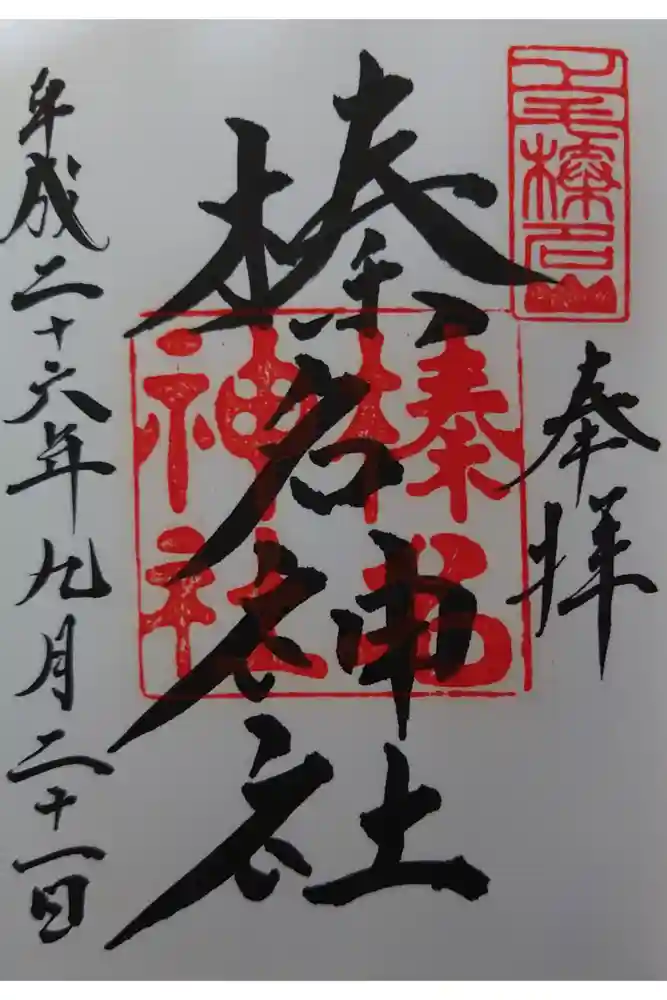 上毛榛名山
奉拝
榛名神社
榛名神社
平成二十六年九月二十一日